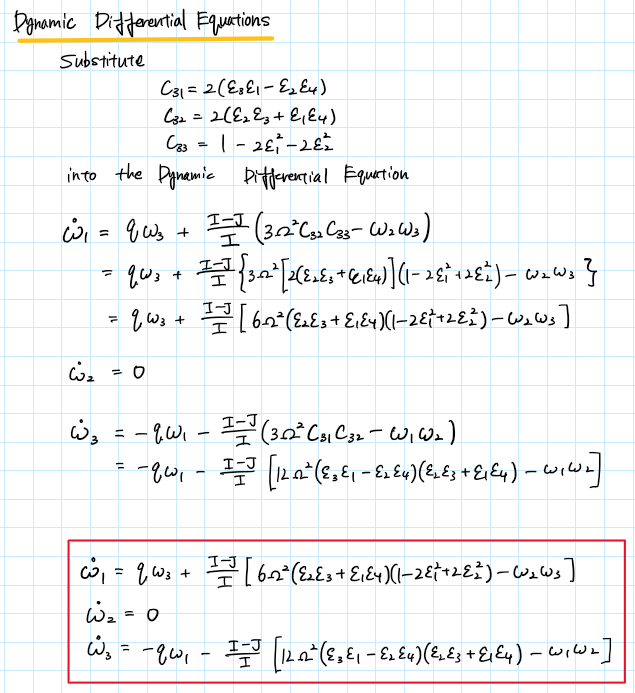 Dynamic Differential Equations
Substitute
C₃₁ = 2(ε₃ε₁ − ε₂ε₄)
C₃₂ = 2(ε₂ε₃ + ε₁ε₄)
C₃₃ = 1 − 2ε₁² − 2ε₂²
into the Dynamic Differential Equation
ω̇₁ = qω₃ + (I−J)/I (3Ω²C₃₂C₃₃ − ω₂ω₃)
= qω₃ + (I−J)/I {3Ω²[2(ε₂ε₃ + ε₁ε₄)](1 − 2ε₁² + 2ε₂²) − ω₂ω₃}
= qω₃ + (I−J)/I [6Ω²(ε₂ε₃ + ε₁ε₄)(1 − 2ε₁² + 2ε₂²) − ω₂ω₃]
ω̇₂ = 0
ω̇₃ = −qω₁ − (I−J)/I (3Ω²C₃₁C₃₂ − ω₁ω₂)
= −qω₁ − (I−J)/I [12Ω²(ε₃ε₁ − ε₂ε₄)(ε₂ε₃ + ε₁ε₄) − ω₁ω₂]
ω̇₁ = qω₃ + (I−J)/I [6Ω²(ε₂ε₃ + ε₁ε₄)(1 − 2ε₁² + 2ε₂²) − ω₂ω₃]
ω̇₂ = 0
ω̇₃ = −qω₁ − (I−J)/I [12Ω²(ε₃ε₁ − ε₂ε₄)(ε₂ε₃ + ε₁ε₄) − ω₁ω₂]